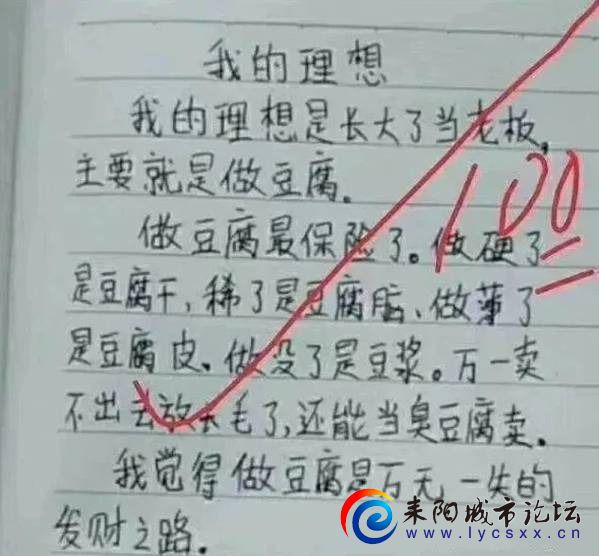 我的理想
我的理想是长大了当老板,
主要就是做豆腐.
做豆腐最保险了。做硬了
是豆腐干,稀了是豆腐脑、做薄了
是豆腐皮、做没了是豆浆。万一卖
不出去放长毛了,还能当臭豆腐卖。
我觉得做豆腐是万无一失的
发财之路.
100
耒阳城市论坛
www.lycsxx.cn